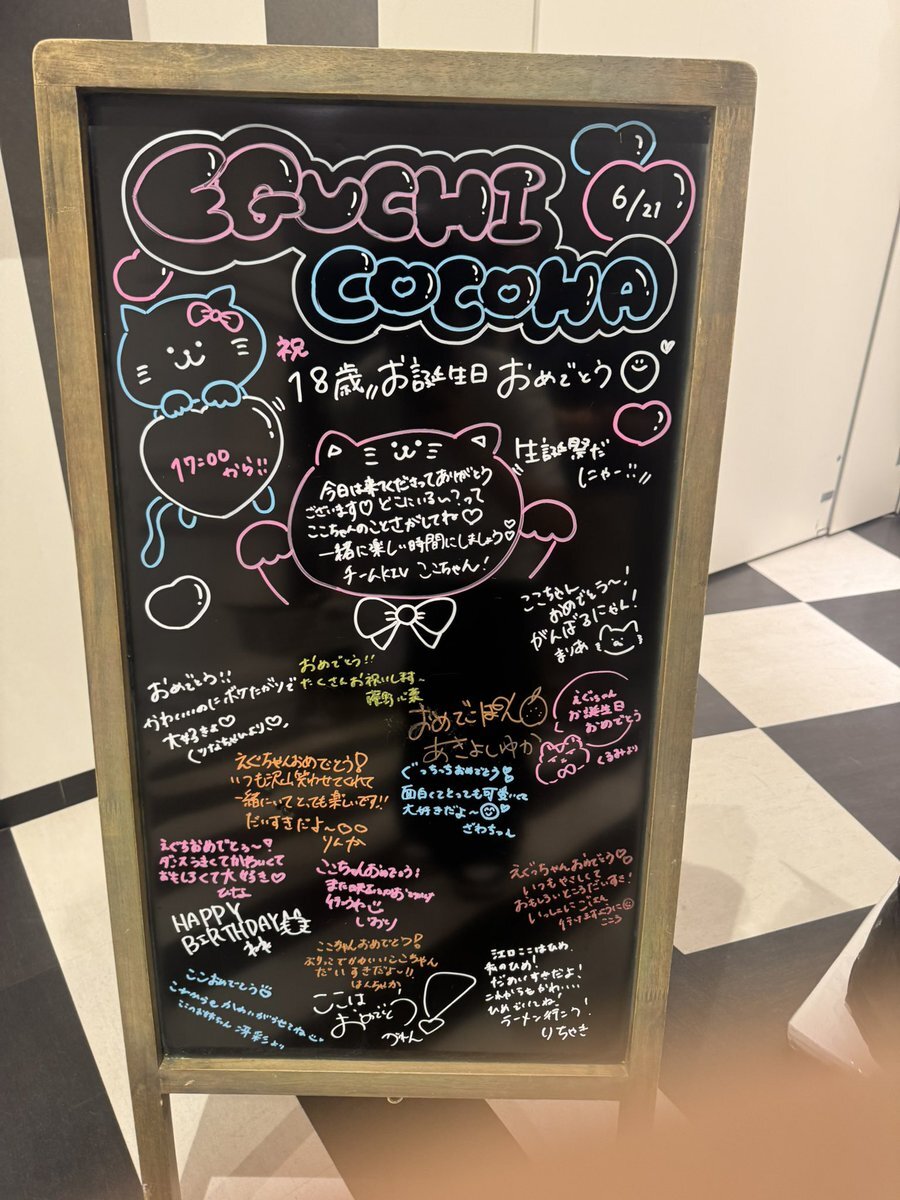 EGUCHI
6/21
COCOWA
祝
18歳お誕生日おめでとう
17:00
から!!
生誕祭だ
にゃー!!
今日は来てくださってありがとう
ございます♡どこにいるい?って
ここちゃんのことさがしてね♡
一緒に楽しい時間にしましょう♡
チームKIV ここちゃん!
ここちゃん
おめでとう〜!
がんばるにゃん!
まりあ
おめでとう!!
かわいいのにボケたがりで
大好きよ♡
おめでとう!!
たくさんお祝いします〜
おめでぽん
あきよしゆか
えぐちゃん
お誕生日
おめでとう
くるみより
えぐちゃんおめでとう!
いつも沢山笑わせてくれて
一緒にいてとても楽しいです!!
だいすきだよ〜
りんか
ぐっちっちおめでとう!
面白くてとっても可愛いくて
大好きだよ〜
ざわちゃん
えぐちおめでとう〜!
ダンスうまくてかわいくて
おもしろくて大好き♡
ひな
ここちゃんおめでとう!
行こうね
しおり
えぐっちゃんおめでとう!
いつもやさしくて
おもしろいところだいすき!
いっしょにごはん
行けますように
こころ
HAPPY
BIRTHDAY
ここちゃんおめでとう!
ぶりっこでかわいいここちゃん
だいすきだよ〜!!
はんちゃか
ここおめでとう
ここは
おめでとう!
江口ここはひめ、
私のひめ!
だいすきだよ!
これからもかわいい
ひめでいてね!
ラーメン行こう!
りちゃき